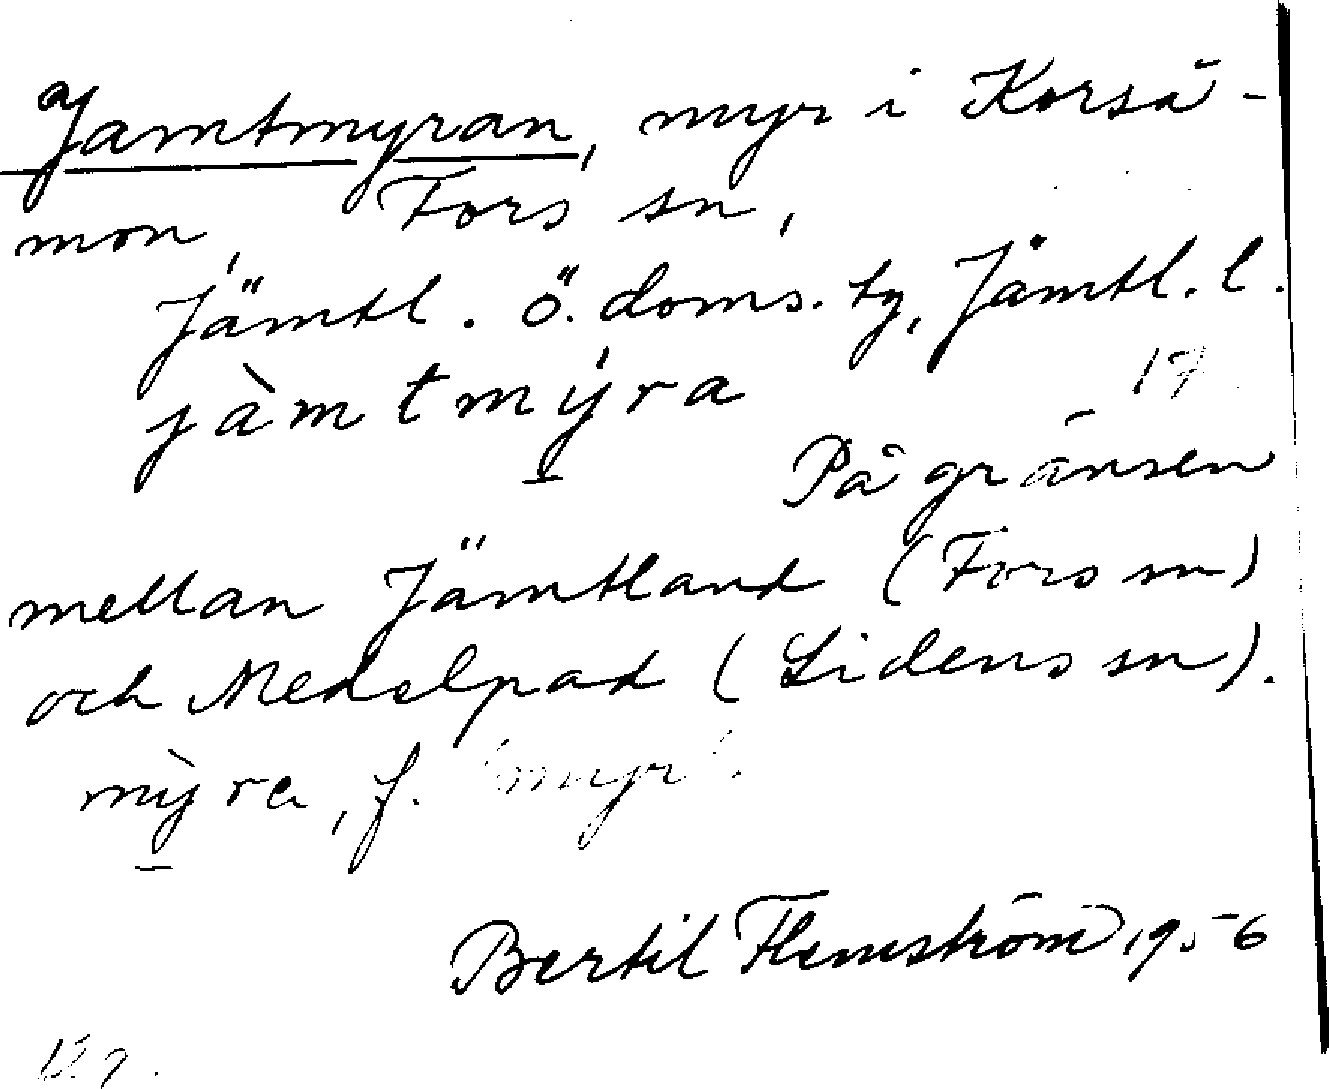 Jamtmyran, myr i Korså-
mon, Fors sn,
Jämtl. ö. doms. tg, Jämtl. l.
jàmtmýra 17
På gränsen
mellan Jämtland (Fors sn)
och Medelpad (Lidens sn).
mỳra, f. 'myr'.
Bertil Flemström 1956